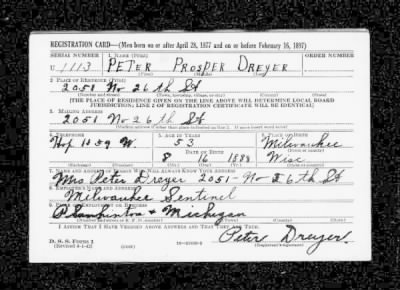 REGISTRATION CARD—(Men born on or after April 28, 1877 and on or before February 16, 1897)
SERIAL NUMBER 1. NAME (Print) ORDER NUMBER
U 1113 PETER PROSPER DREYER
(First) (Middle) (Last)
2. PLACE OF RESIDENCE (Print)
2051 No 26th St
(Number and street) (Town, township, village, or city) (County) (State)
[THE PLACE OF RESIDENCE GIVEN ON THE LINE ABOVE WILL DETERMINE LOCAL BOARD
JURISDICTION; LINE 2 OF REGISTRATION CERTIFICATE WILL BE IDENTICAL]
3. MAILING ADDRESS
2051 No 26th St
[Mailing address if other than place indicated on line 2. If same insert word same]
4. TELEPHONE 5. AGE IN YEARS 6. PLACE OF BIRTH
53 Milwaukee
DATE OF BIRTH (Town or county)
8 16 1888 Wisc
(Exchange) (Number) (Mo.) (Day) (Yr.) (State or country)
7. NAME AND ADDRESS OF PERSON WHO WILL ALWAYS KNOW YOUR ADDRESS
Mrs Peter Dreyer 2051 - No 26th St
8. EMPLOYER'S NAME AND ADDRESS
Milwaukee Sentinel
9. PLACE OF EMPLOYMENT OR BUSINESS
Plankinton & Michigan
(Number and street or R. F. D. number) (Town) (County) (State)
I AFFIRM THAT I HAVE VERIFIED ABOVE ANSWERS AND THAT THEY ARE TRUE.
D. S. S. Form 1
(Revised 4-1-42) (over) Peter Dreyer.
(Registrant's signature)